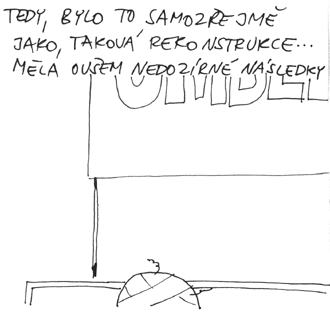 TEDY, BYLO TO SAMOZŘEJMĚ
JAKO, TAKOVÁ REKONSTRUKCE...
MĚLA OUŠEM NEDOZÍRNÉ NÁSLEDKY